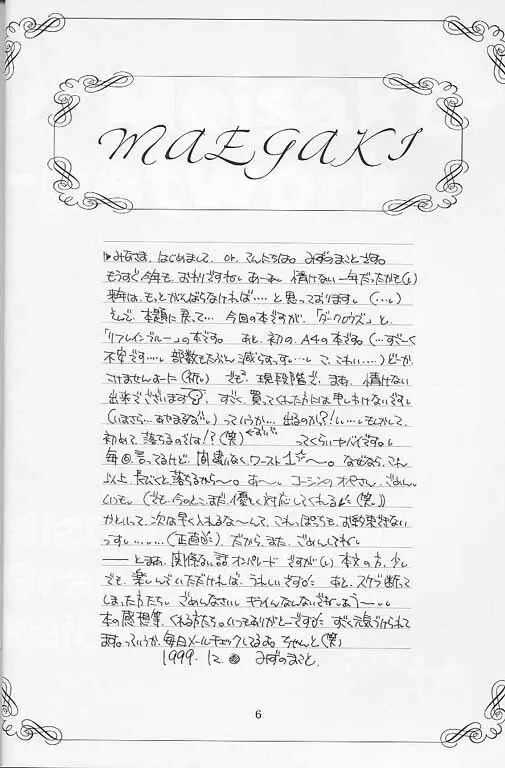 MAEGAKI
みなさま、はじめまして、or、こんにちは。みずのまことです。
もうすぐ今年も、おわりですねぃ。あーあ、情けない一年だったかも(し)
来年は、もっとがんばらなければ‥‥と思っております。(…し)
さて、本題に戻って… 今回の本ですが、「ダークロウズ」と、
「リフレインブルー」の本です。 あと、初の、A4の本です。(…すごーく
不安です…。 部数もたぶん減らすっす…。 こ、こわい…)どーか、
こけませんよーに(祈)。 でも、現段階で、まあ、情けない
出来でございます。 すごく、買ってくれた方には申しわけないです。
(いまさら…あやまるな。) っていうか… 出るのか?!…もしかして、
初めて、落ちるのでは!?(笑) ってくらいヤバイです。
毎回、言ってるけど、間違いなくワースト1☆〜。 なぜなら、これ
以上、長びくと落ちるから〜。 あー、 コーシンのオペさん、ごめんなさい
いつも。 (でも、今のとこ、まだ、優しく対応してくれる(笑))
かといって、次は早く入れるなーんて、これっぽっちも、お約束できない
っす……(正直) だから、また、ごめんしてね。
── とまあ、関係ない話オンパレードですが(し) 本文の方、少し
でも、楽しんでいただければ、うれしいです。 あと、スケブ断って
しまった方たち。 ごめんなさい。
本の感想等、くれる方たち。いつもありがとーです。 すごく元気づけられて
ます。っていうか、毎日メールチェックしてるよ。ちゃんと(笑)
1999. 12. みずのまこと.
6